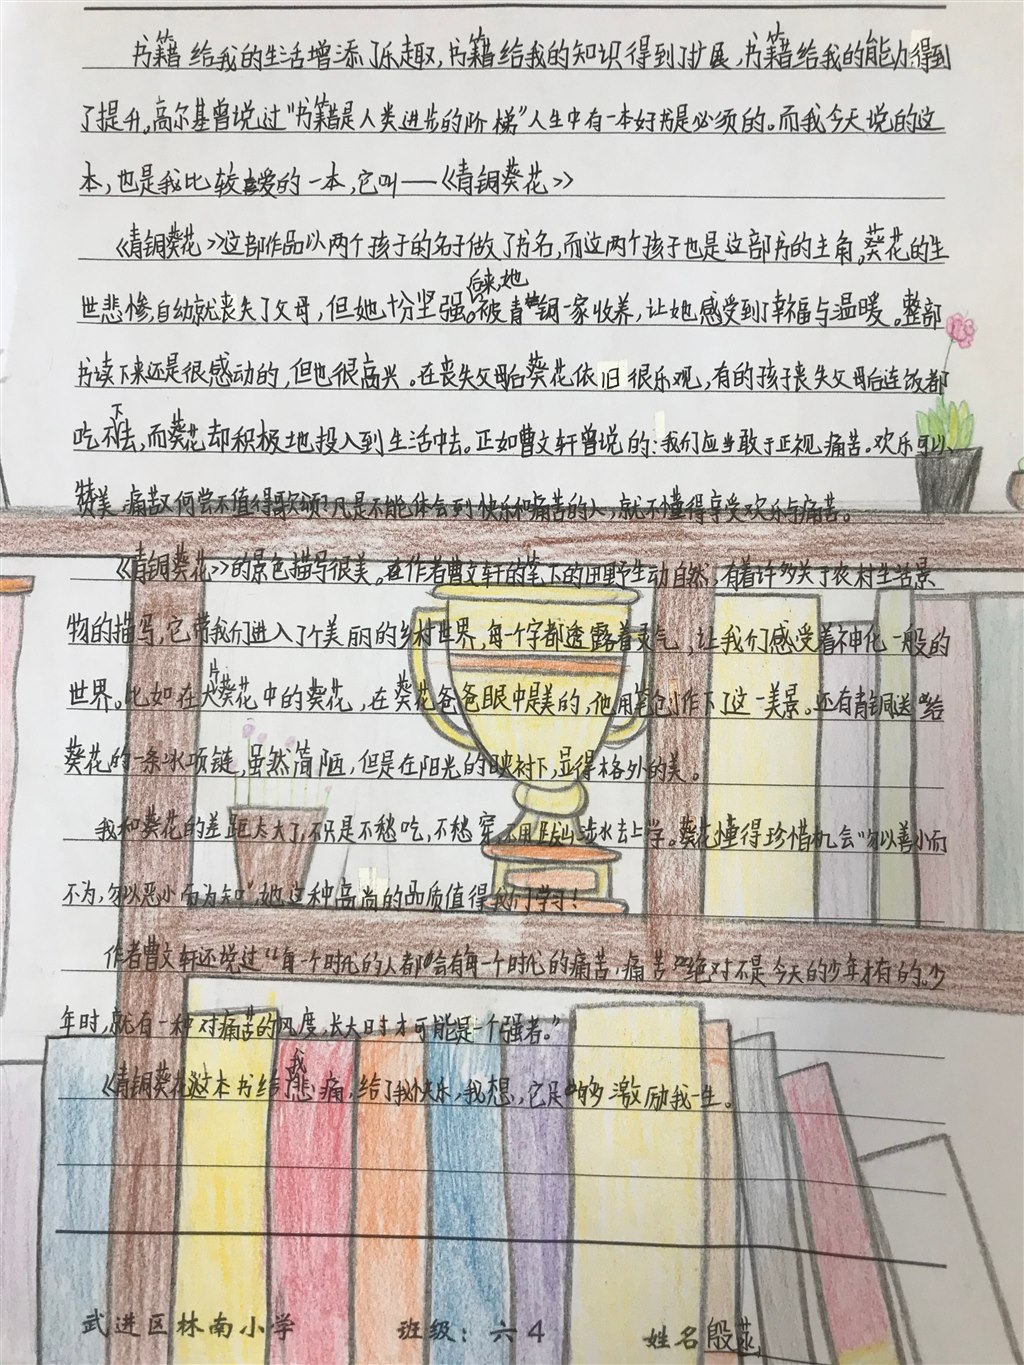 书籍给我的生活增添了乐趣,书籍给我的知识得到了扩展,书籍给我的能力得到
了提升。高尔基曾说过“书籍是人类进步的阶梯”人生中有一本好书是必须的。而我今天说的这
本,也是我比较喜爱的一本,它叫——《青铜葵花》
《青铜葵花》这部作品以两个孩子的名子做了书名,而这两个孩子也是这部书的主角。葵花的生
世悲惨,自幼就丧失了父母,但她十分坚强。后来,她被青铜一家收养,让她感受到了幸福与温暖。整部
书读下来还是很感动的,但也很高兴。在丧失父母后葵花依旧很乐观,有的孩子丧失父母后连饭都
吃不下去,而葵花却积极地投入到生活中去。正如曹文轩曾说的:我们应当敢于正视痛苦。欢乐可以
赞美,痛苦又何尝不值得歌颂?凡是不能体会到快乐和痛苦的人,就不懂得享受欢乐与痛苦。
《青铜葵花》的景色描写很美。在作者曹文轩的笔下的田野生动自然,有着许多关于农村生活景
物的描写,它带我们进入了个美丽的乡村世界,每一个字都透露着灵气,让我们感受着神化一般的
世界。比如在大片葵花中的葵花,在葵花爸爸眼中是美的,他用笔创作下了这一美景。还有青铜送给
葵花的一条冰项链,虽然简陋,但是在阳光的映衬下,显得格外的美。
我和葵花的差距太大了,不只是不愁吃,不愁穿,不用跋山涉水去上学。葵花懂得珍惜机会“勿以善小而
不为,勿以恶小而为知”,她这种高尚的品质值得我们学习!
作者曹文轩还说过“每一个时代的人都会有每一个时代的痛苦,痛苦绝对不是今天的少年才有的。少
年时,就有一种对痛苦的风度,长大时才可能是一个强者。”
《青铜葵花》这本书给我悲痛,给了我快乐,我想,它足够激励我一生。
武进区林南小学 班级:六4 姓名殷